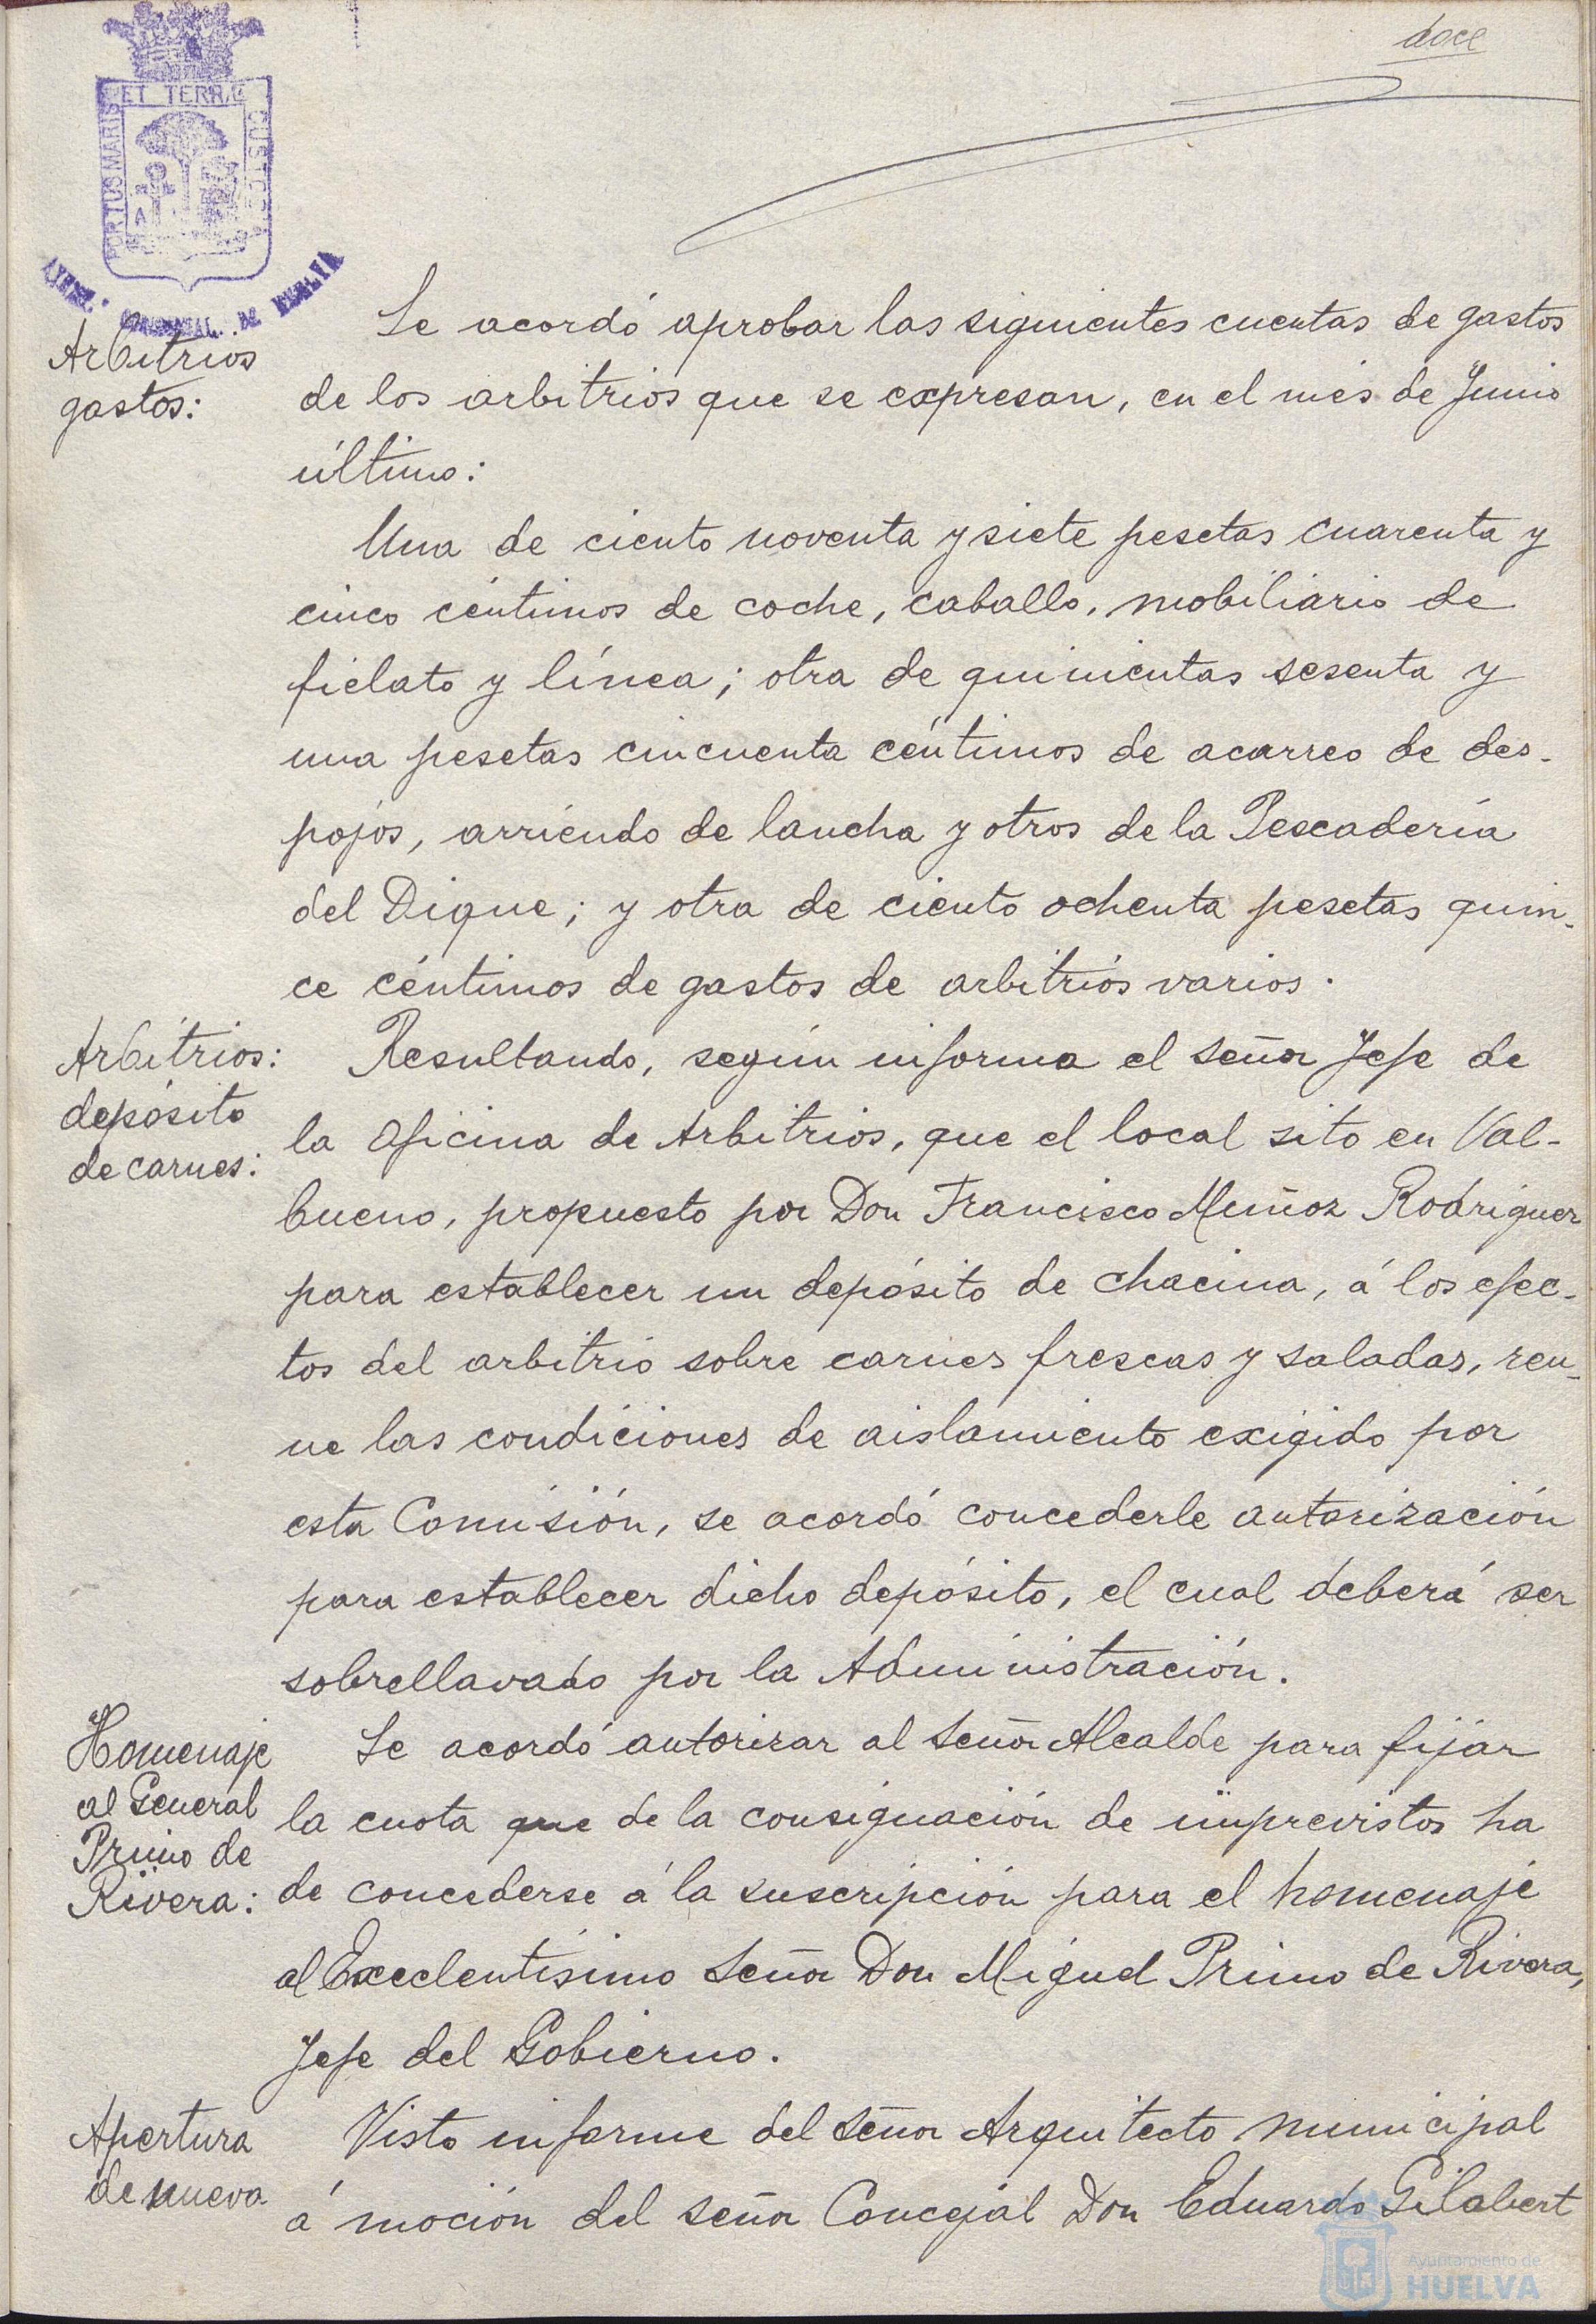 doce
ET TERRAE
PORTUS MARIS
CUSTO
AYUN. CONSTITUCIONAL DE HUELVA
Arbitrios
gastos:
Se acordó aprobar las siguientes cuentas de gastos
de los arbitrios que se expresan, en el mes de Junio
último:
Una de ciento noventa y siete pesetas cuarenta y
cinco céntimos de coche, caballo, mobiliario de
fielato y línea; otra de quinientas sesenta y
una pesetas cincuenta céntimos de acarreo de des-
pojos, arriendo de lancha y otros de la Pescadería
del Dique; y otra de ciento ochenta pesetas quin-
ce céntimos de gastos de arbitrios varios.
Arbitrios:
depósito
de carnes:
Resultando, según informa el señor Jefe de
la Oficina de Arbitrios, que el local sito en Val-
bueno, propuesto por Don Francisco Muñoz Rodriguez
para establecer un depósito de chacina, á los efec-
tos del arbitrio sobre carnes frescas y saladas, reu-
ne las condiciones de aislamiento exigido por
esta Comisión, se acordó concederle autorización
para establecer dicho depósito, el cual deberá ser
sobrellavado por la Administración.
Homenaje
al General
Primo de
Rivera:
Se acordó autorizar al Señor Alcalde para fijar
la cuota que de la consignación de imprevistos ha
de concederse á la suscripción para el homenaje
al Excelentísimo Señor Don Miguel Primo de Rivera,
Jefe del Gobierno.
Apertura
de nueva
Visto informe del Señor Arquitecto municipal
á moción del señor Concejal Don Eduardo Gilabert
Ayuntamiento de
HUELVA